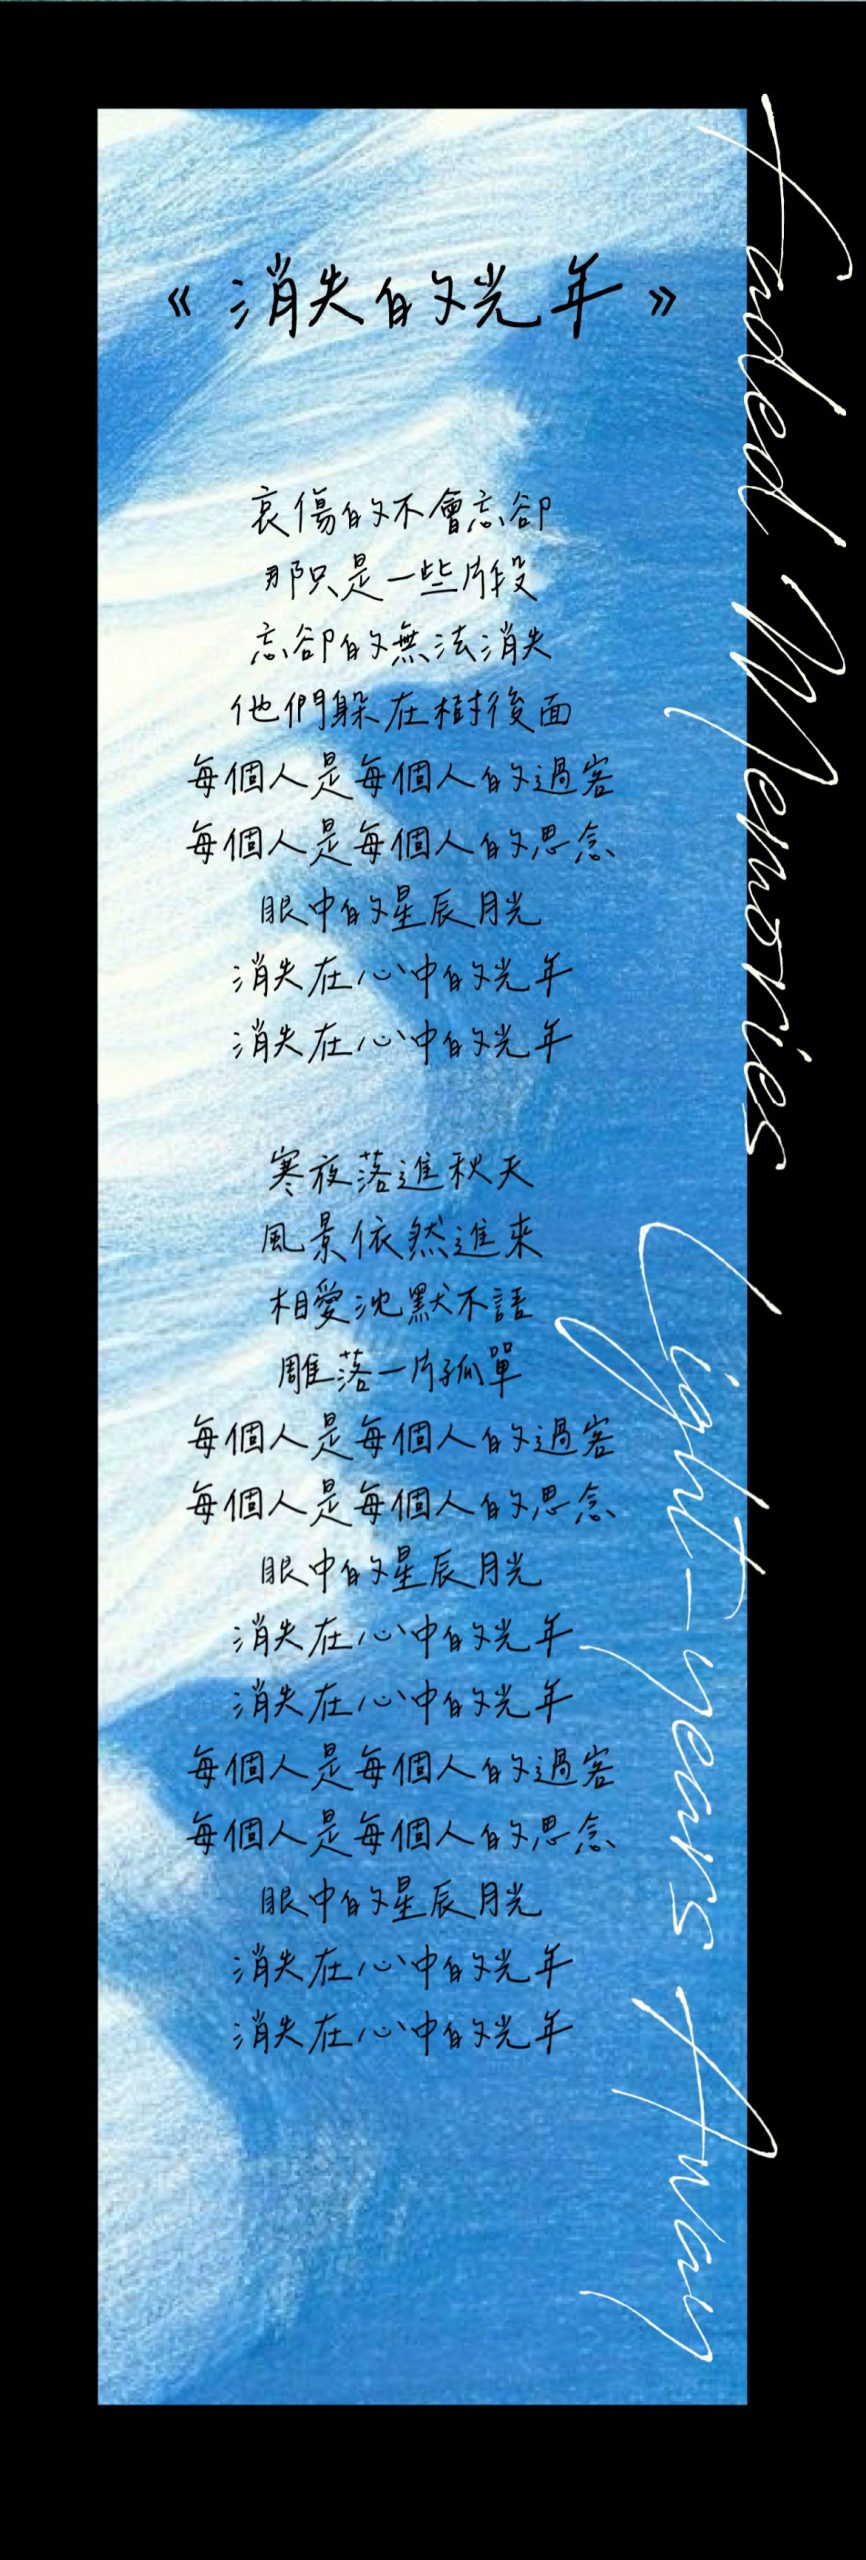 《消失的光年》
哀傷的不會忘卻
那只是一些片段
忘卻的無法消失
他們躲在樹後面
每個人是每個人的過客
每個人是每個人的思念
眼中的星辰月光
消失在心中的光年
消失在心中的光年
寒夜落進秋天
風景依然進來
相愛沈默不語
雕落一片孤單
每個人是每個人的過客
每個人是每個人的思念
眼中的星辰月光
消失在心中的光年
消失在心中的光年
每個人是每個人的過客
每個人是每個人的思念
眼中的星辰月光
消失在心中的光年
消失在心中的光年
Faded Memories
Light-years Away